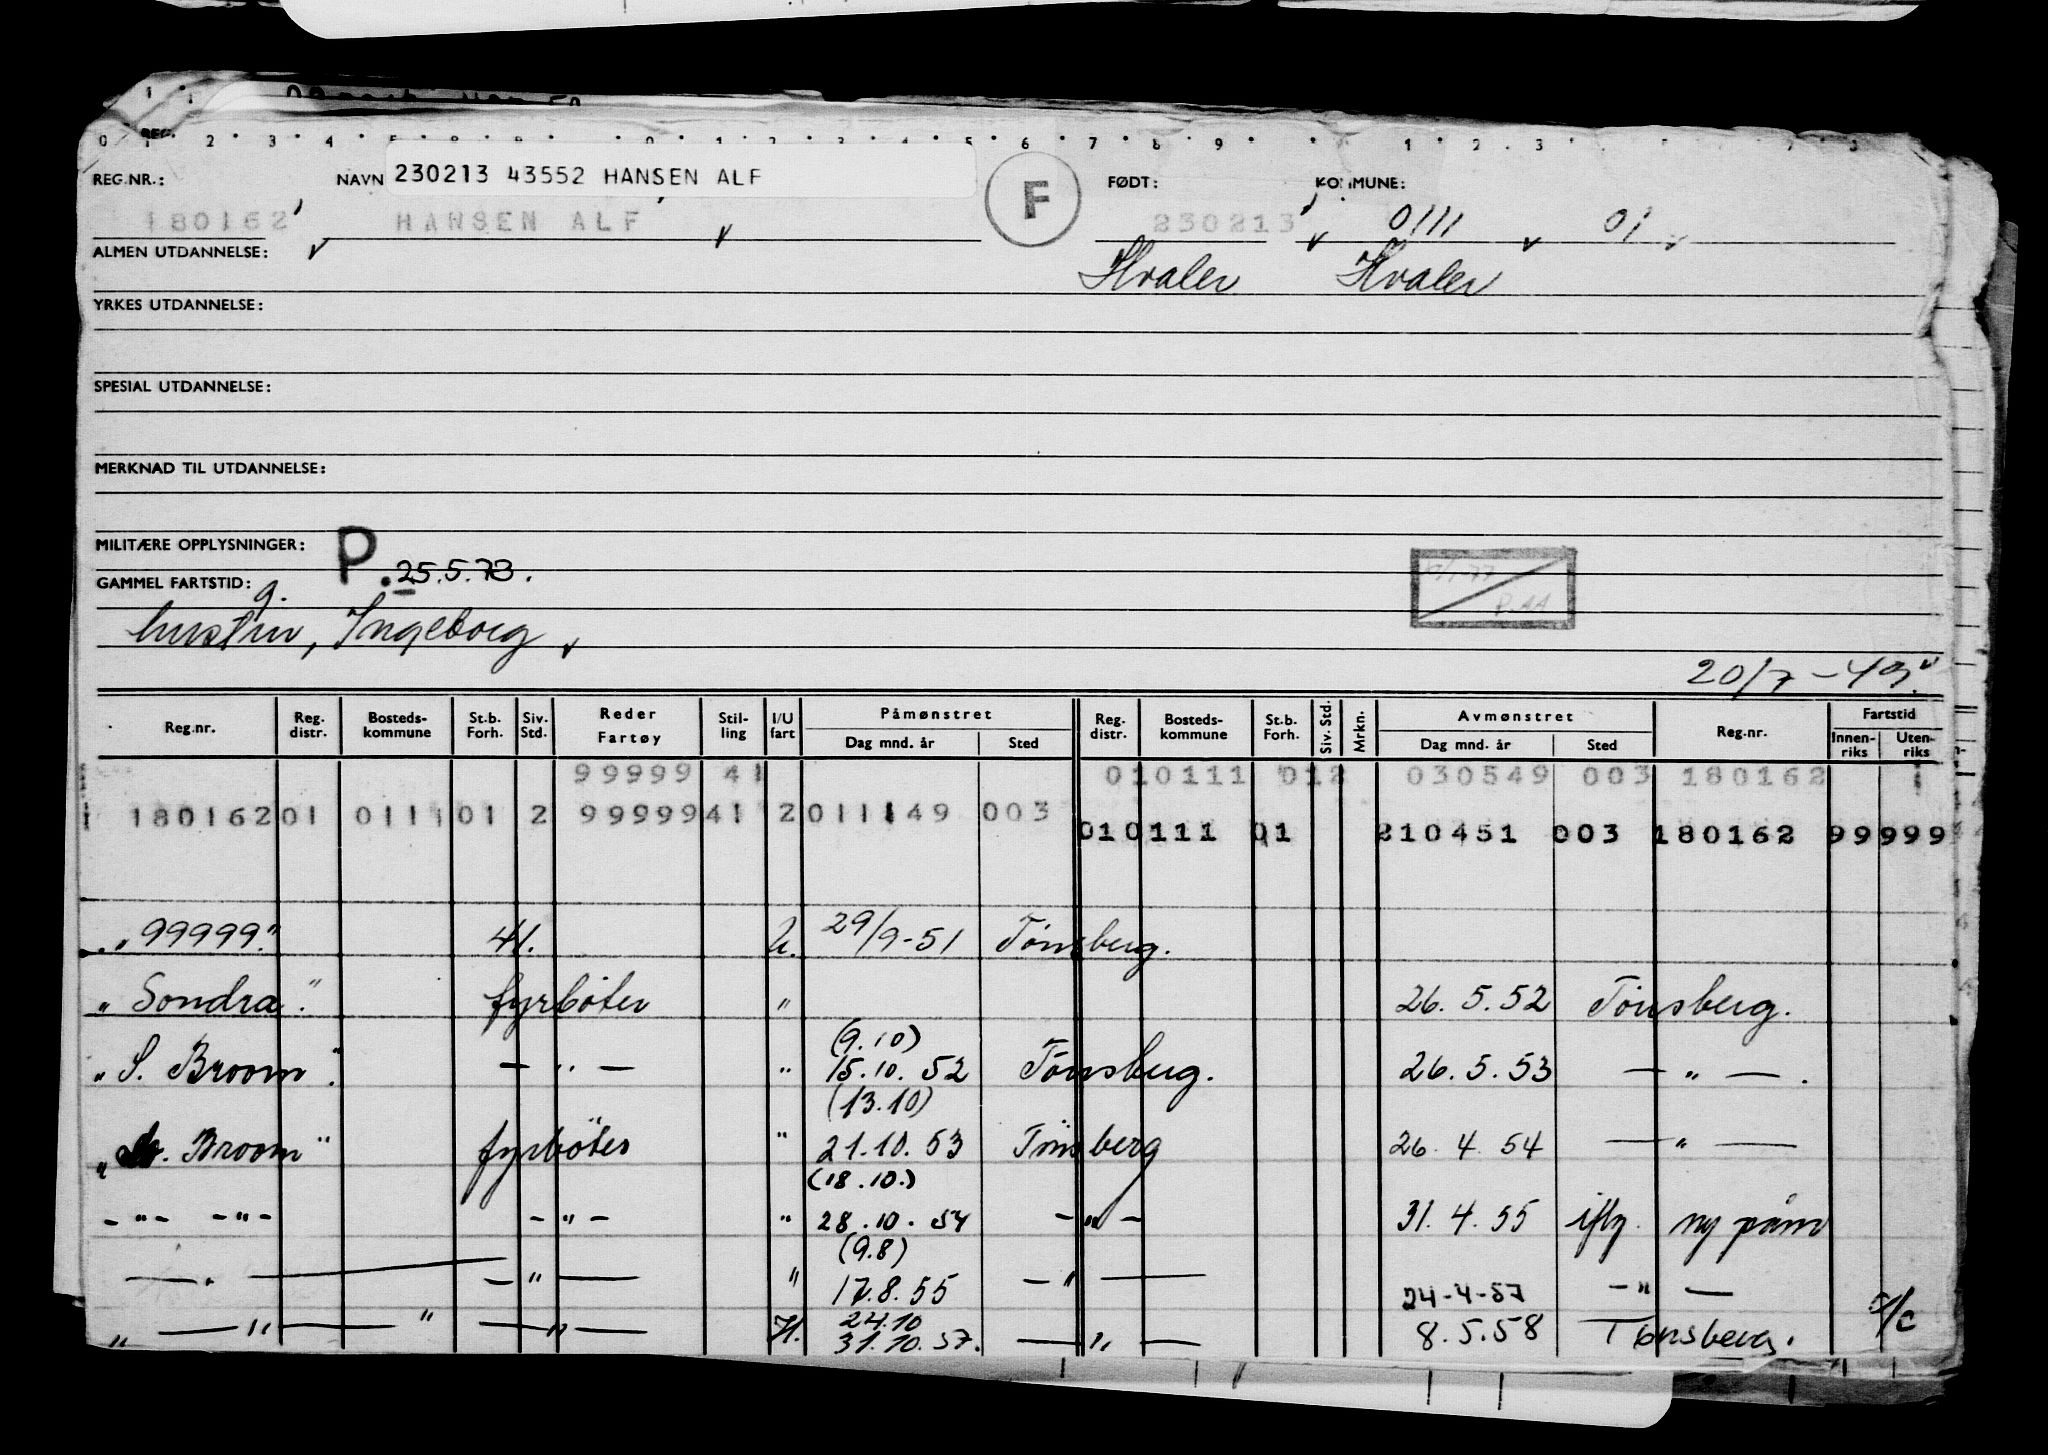 REG.NR.: NAVN 230213 43552 HANSEN ALF F FØDT: KOMMUNE:
180162 HANSEN ALF 230213 0111 01
ALMEN UTDANNELSE: Hvaler Hvaler
YRKES UTDANNELSE:
SPESIAL UTDANNELSE:
MERKNAD TIL UTDANNELSE:
MILITÆRE OPPLYSNINGER: P. 25.5.73.
GAMMEL FARTSTID:
g.
hustru, Ingeborg
20/7-49.
Reg.nr. Reg. distr. Bosteds-kommune St.b. Forh. Siv. Std. Reder Fartøy Stil-ling I/U fart Påmønstret Dag mnd. år Sted Reg. distr. Bosteds-kommune St.b. Forh. Siv. Std. Mrkn. Avmønstret Dag mnd. år Sted Reg.nr. Fartstid Innen-riks Uten-riks
99999 41 010111 012 030549 003 180162
180162 01 0111 01 2 99999 41 2 011149 003
010111 01 210451 003 180162 99999
"99999." 41. U. 29/9-51 Tönsberg.
"Sondra". fyrböter " 26.5.52 Tönsberg.
(9.10)
"S. Broom". — " — " 15.10.52 Tönsberg. 26.5.53 — " — .
(13.10)
Broom" fyrböter " 21.10.53 Tönsberg 26.4.54 — " —
(18.10.)
- " - - " - - " - " 28.10.54 - " - 31.4.55 iflg. ny påm
(9.8)
— " — " 17.8.55 — " — 24-4-57 — " —
24.10
" — " — " — " — H. 31.10.57. — " — 8.5.58 Tönsberg.